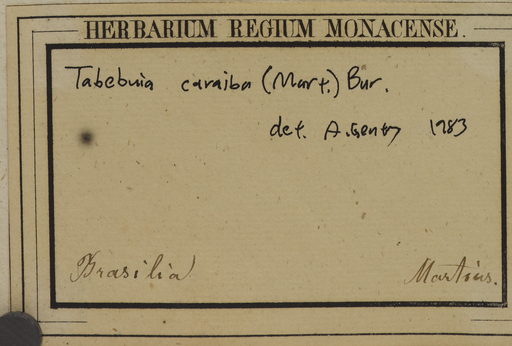 HERBARIUM REGIUM MONACENSE.
Tabebuia caraiba (Mart.) Bur.
det. A. Gentry 1983
Brasilia
Martius.